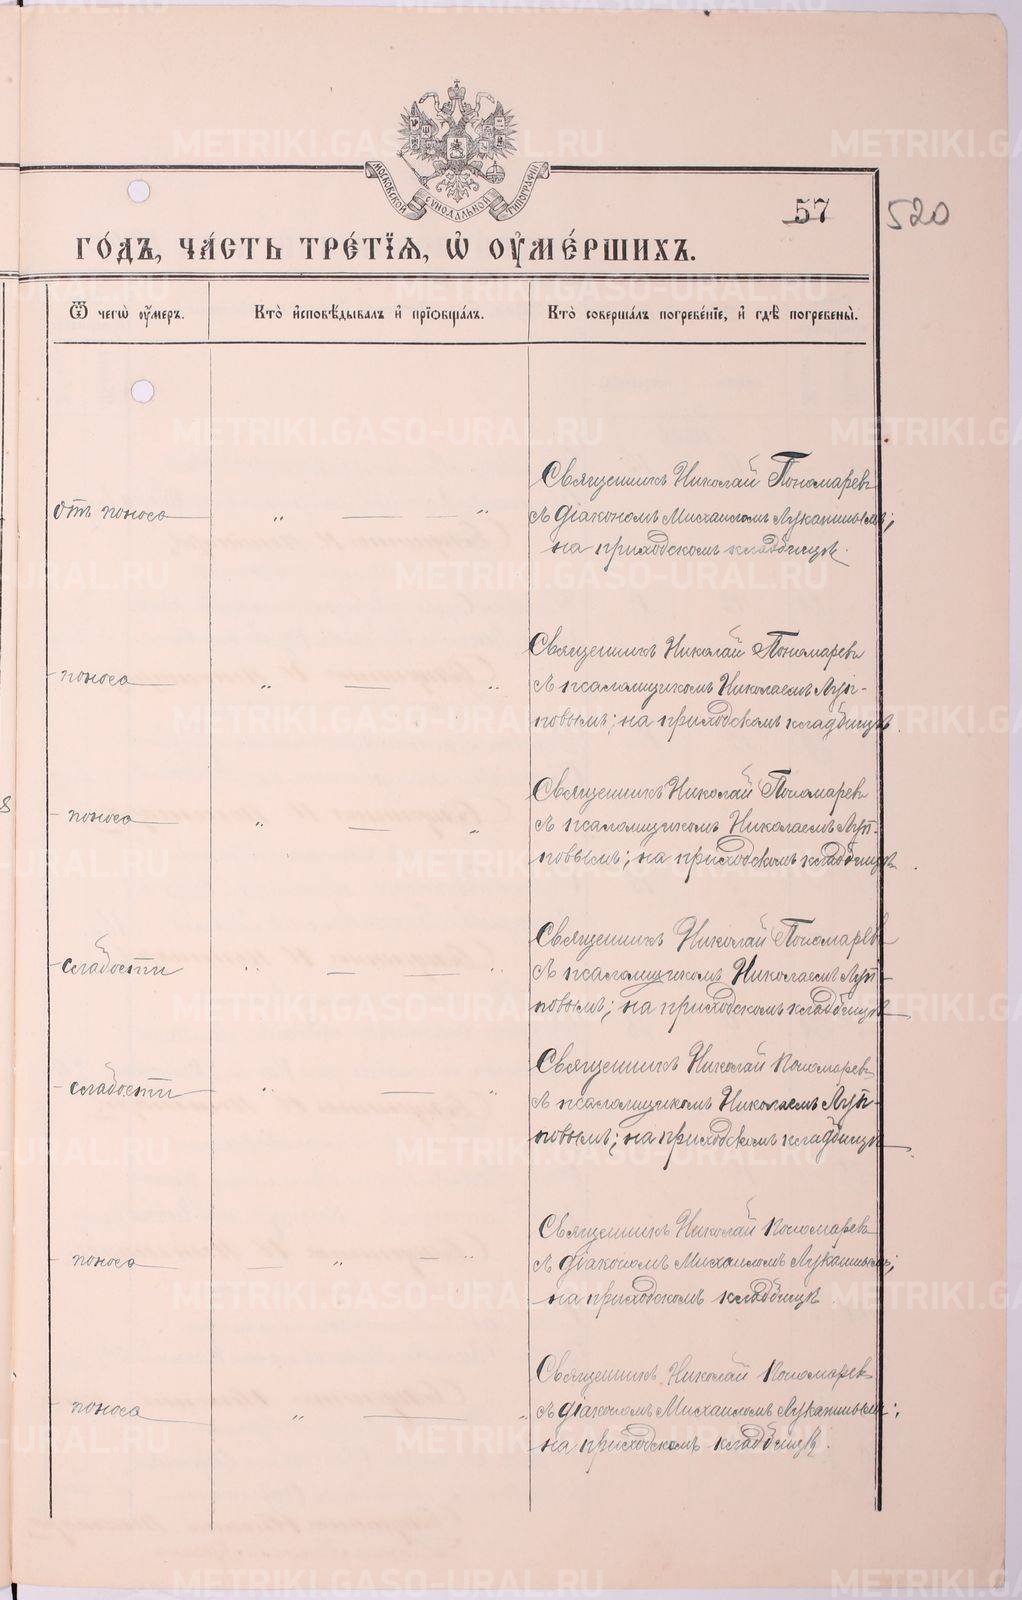 МОСКОВСКОЙ СѴНОДАЛЬНОЙ ТИПОГРАФІИ
57
520
ГО́ДЪ, ЧА́СТЬ ТРЕ́ТІѦ, Ѡ҆ ОУ҆МЕ́РШИХЪ.
Ѿ чегѡ̀ оу҆́меръ.
Кто̀ и҆сповѣ́дывалъ и҆ прїѡбща́лъ.
Кто̀ соверша́лъ погребе́нїе, и҆ гдѣ̀ погребены̀.
Священникъ Николай Пономаревъ
отъ поноса „ — „ съ діакономъ Михаиломъ Луканинымъ;
на приходскомъ кладбищѣ.
Священникъ Николай Пономаревъ
- поноса „ — „ съ псаломщикомъ Николаемъ Луп-
повымъ; на приходскомъ кладбищѣ.
Священникъ Николай Пономаревъ
- поноса „ — „ съ псаломщикомъ Николаемъ Луп-
повымъ; на приходскомъ кладбищѣ
Священникъ Николай Пономаревъ
- слабости „ — — „ съ псаломщикомъ Николаемъ Луп-
повымъ; на приходскомъ кладбищѣ
Священникъ Николай Пономаревъ
- слабости „ — „ съ псаломщикомъ Николаемъ Луп-
повымъ; на приходскомъ кладбищѣ
Священникъ Николай Пономаревъ
- поноса — „ — „ съ діакономъ Михаиломъ Луканинымъ;
на приходскомъ кладбищѣ.
Священникъ Николай Пономаревъ
поноса „ — „ съ діакономъ Михаиломъ Луканинымъ;
на приходскомъ кладбищѣ.
METRIKI.GASO-URAL.RU